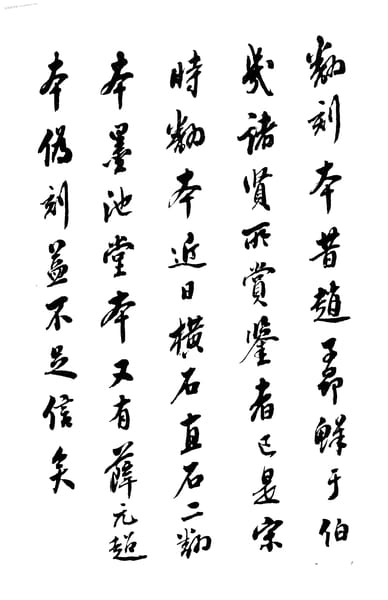 翻刻本昔趙子昂鮮于伯
幾諸賢所賞鑒者已是宋
時翻本近日橫石直石二翻
本墨池堂本又有薛元超
本偽刻益不足信矣